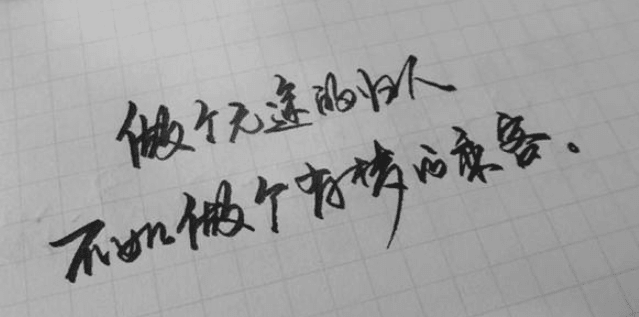 做个无途的归人
不如做个有梦的乘客。